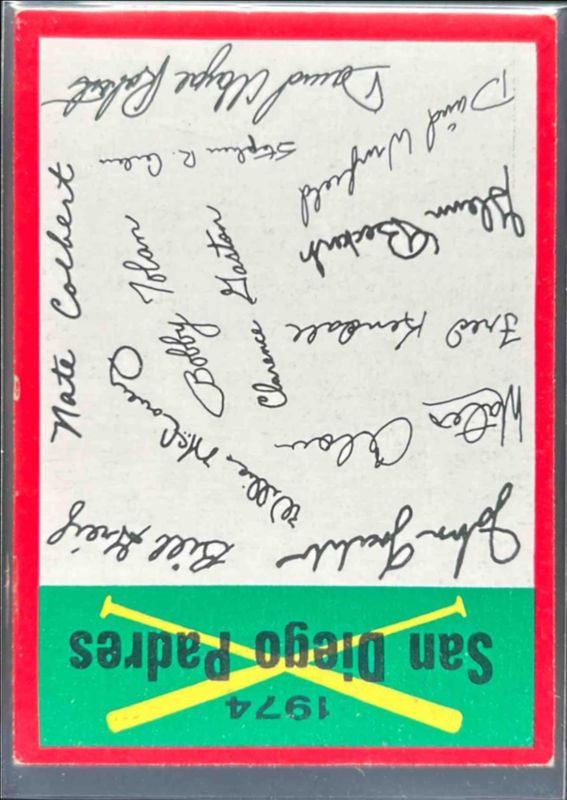 1974
San Diego Padres
John
Bill Greif
Willie McCovey
Walter
Nate Colbert
Clarence Gaston
Bobby Tolan
Fred Kendall
Glenn Beckert
David Winfield
David Wayne Roberts